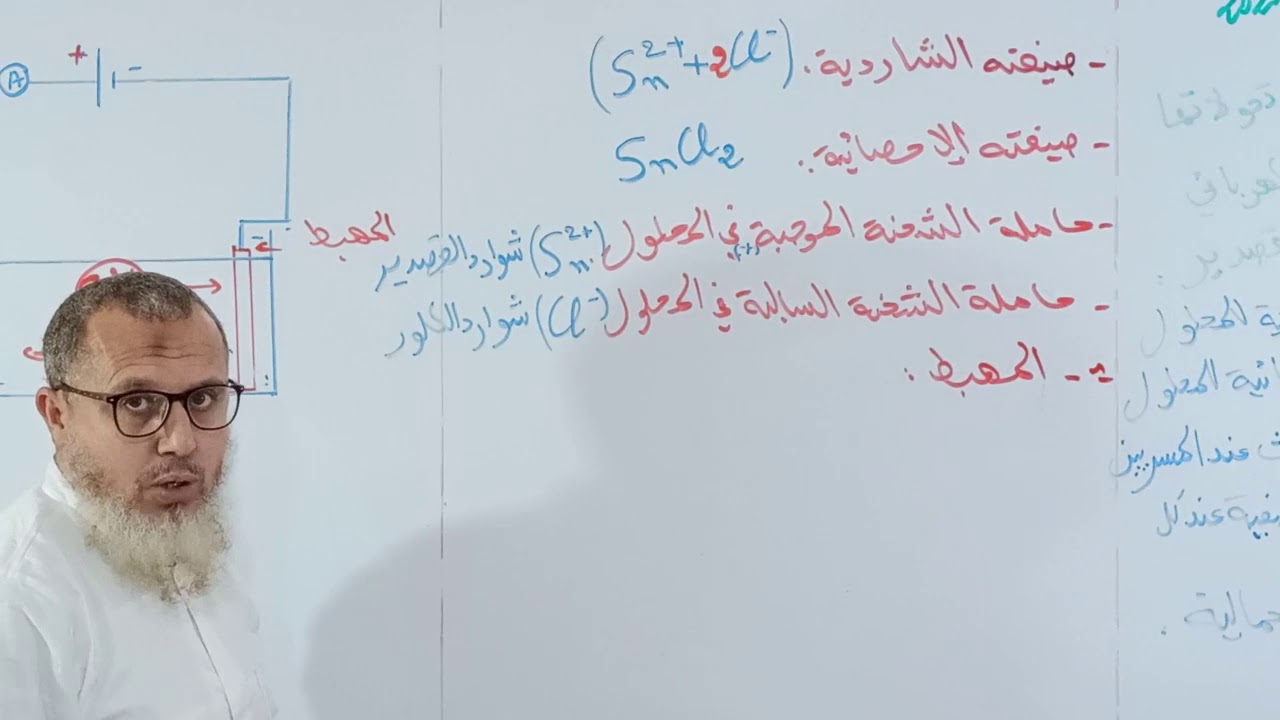 - صيغته الشاردية: (Sn²⁺ + 2Cl⁻)
- صيغته الإحصائية: SnCl₂
- حاملة الشحنة الموجبة (+) في المحلول (Sn²⁺) شوارد القصدير
- حاملة الشحنة السالبة في المحلول (Cl⁻) شوارد الكلور
- المهبط:
A
+ -
المهبط
-
ية المحلول
ائية المحلول
ث عند المسريين
عند كل